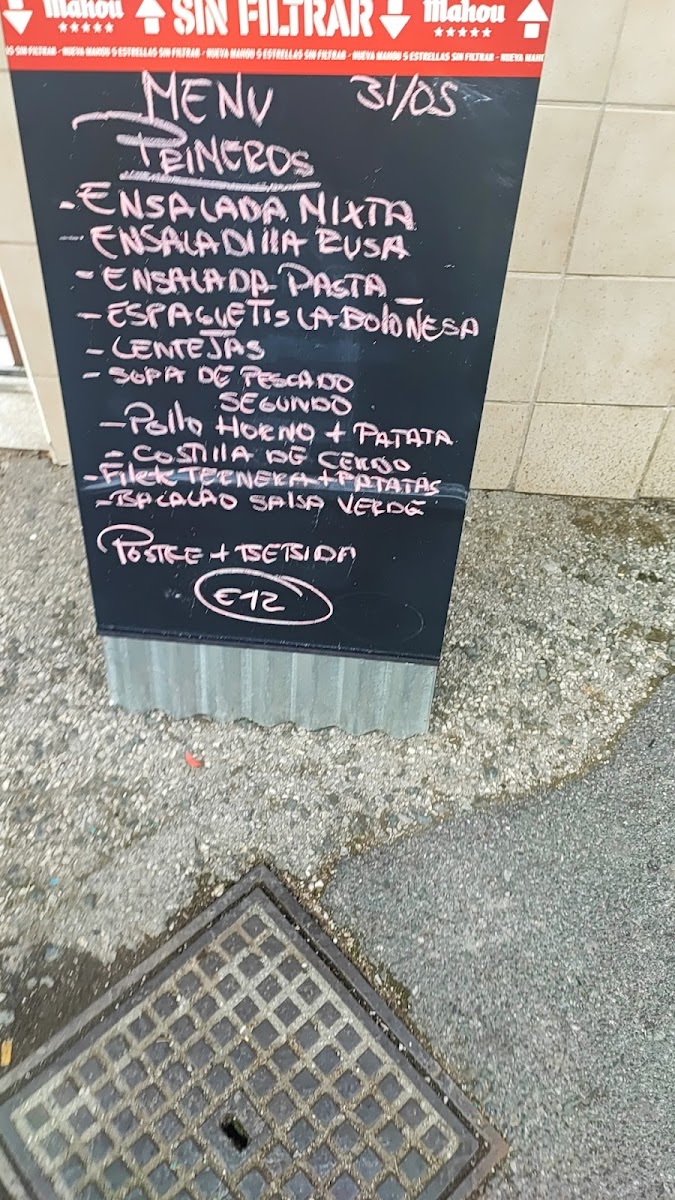 Mahou SIN FILTRAR Mahou
5 ESTRELLAS SIN FILTRAR - NUEVA MAHOU 5 ESTRELLAS SIN FILTRAR - NUEVA MAHOU 5 ESTRELLAS SIN FILTRAR - NUEVA MAHOU
MENU 31/05
PRIMEROS
- ENSALADA MIXTA
- ENSALADIllA RUSA
- ENSALADA PASTA
- ESPAGUETIS LA BOLOÑESA
- LENTEJAS
- SOPA DE PESCADO
SEGUNDO
- Pollo HORNO + PATATA
- COSTIllA DE CERDO
- Filete TERNERA + PATATAS
- BACALAO SALSA VERDE
POSTRE + BEBIDA
€12